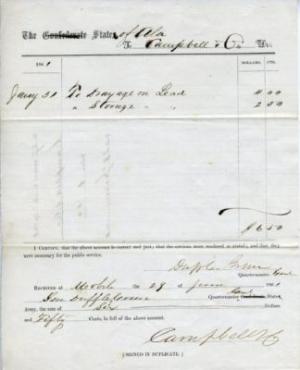 The Confederate States of Ala
To Campbell & Co Dr.
186
DOLLARS. CTS.
Jany 31 To Drayage on Lead 4 00
" Storage " " 2 50
$6 50
I CERTIFY, that the above account is correct and just; that the services were rendered as stated; and that they
were necessary for the public service.
Duff Green
Quartermaster
RECEIVED at Mobile 29 June 1861
Gen Duff Green Quartermaster Confederate States
Army, the sum of Six
and Fifty Cents, in full of the above account.
Campbell & Co
[SIGNED IN DUPLICATE.]